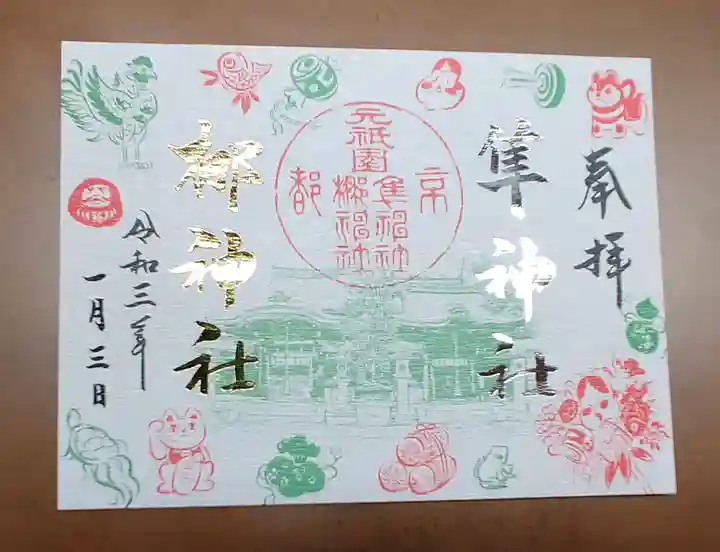 奉拝
隼神社
京都
元祇園
隼神社
梛神社
梛神社
令和三年
一月三日